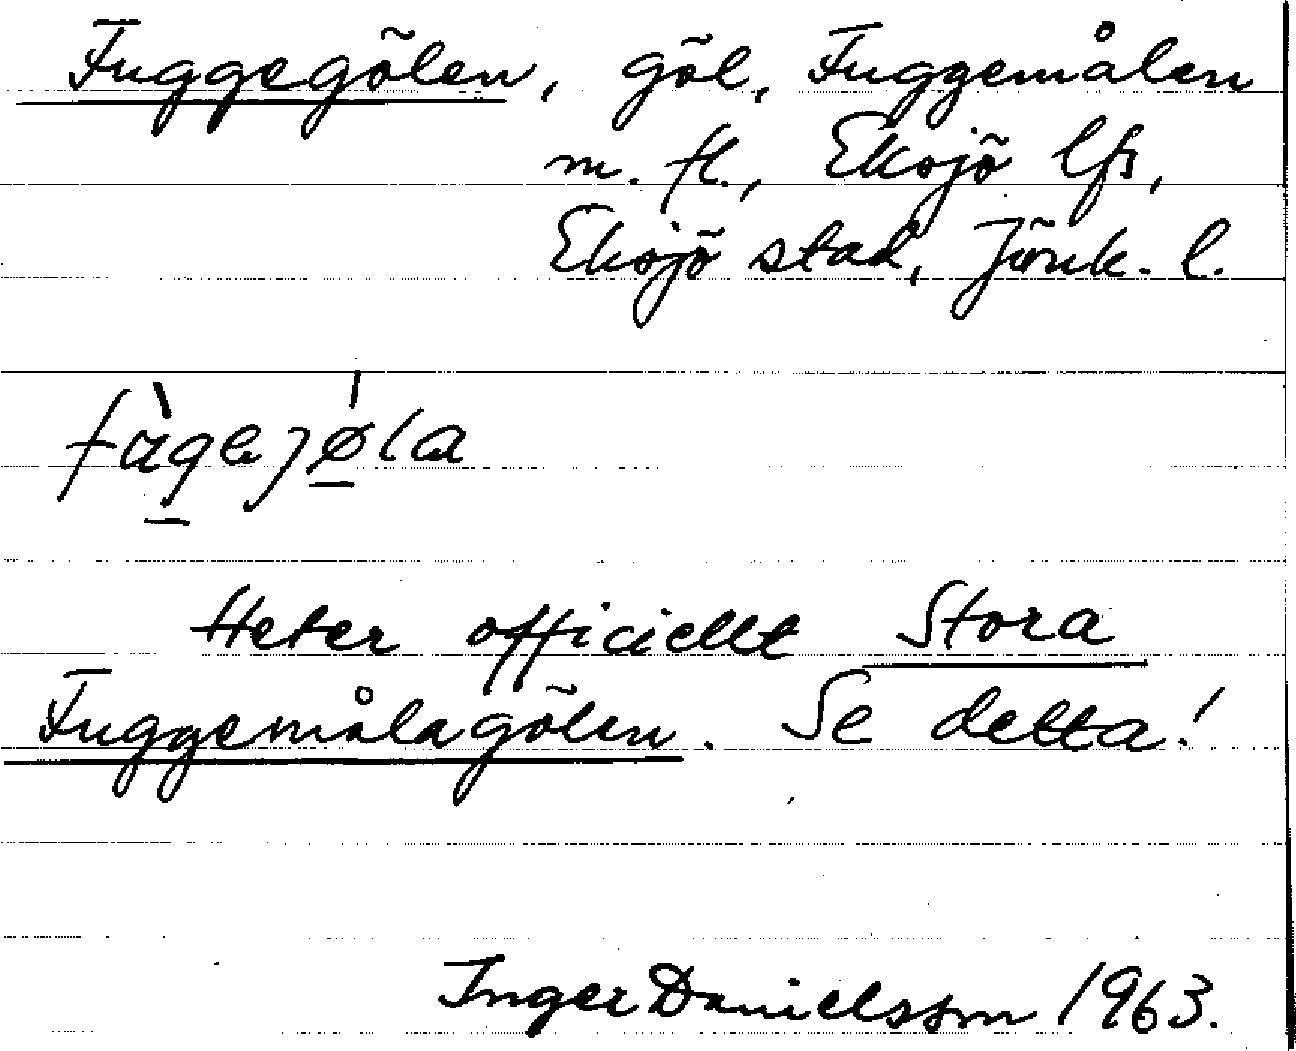 Fuggegölen, göl, Fuggemålen
m. fl., Eksjö lfs,
Eksjö stad, Jönk. l.
Heter officiellt Stora
Fuggemålagölen. Se detta!
Inger Danielsson 1963.